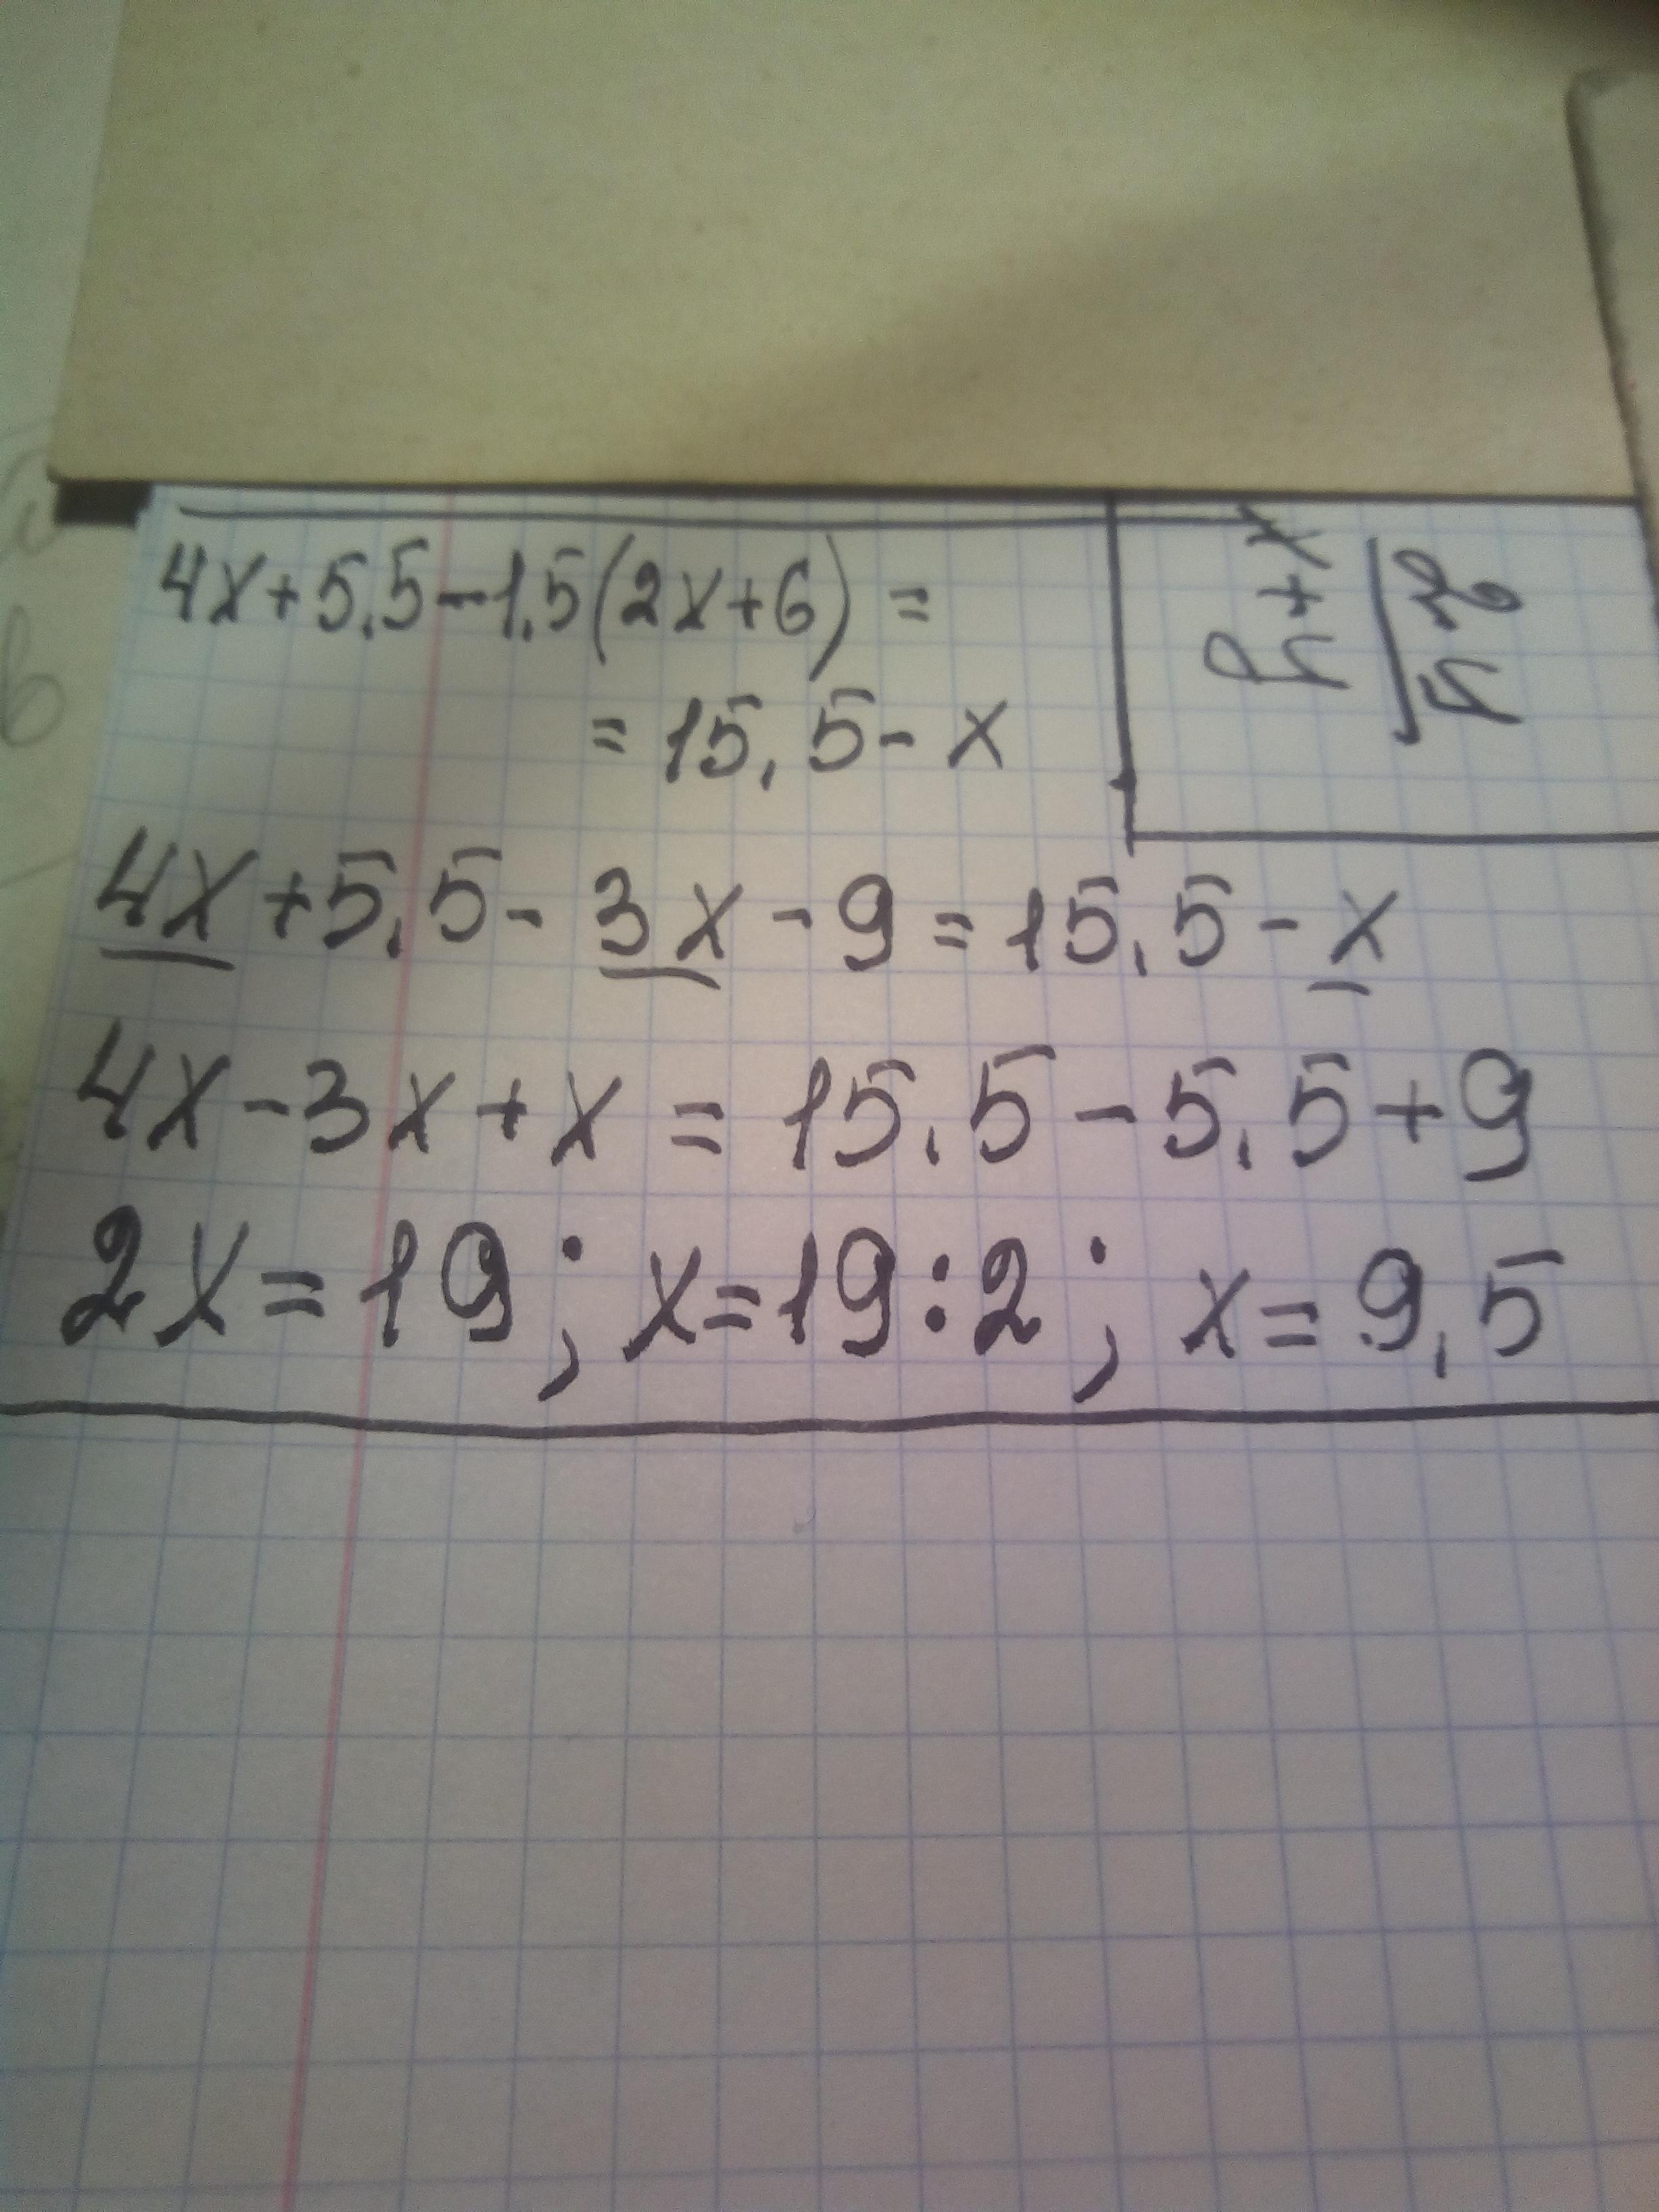 4x+5,5-1,5(2x+6)=
=15,5-x
4x+5,5-3x-9=15,5-x
4x-3x+x=15,5-5,5+9
2x=19; x=19:2; x=9,5